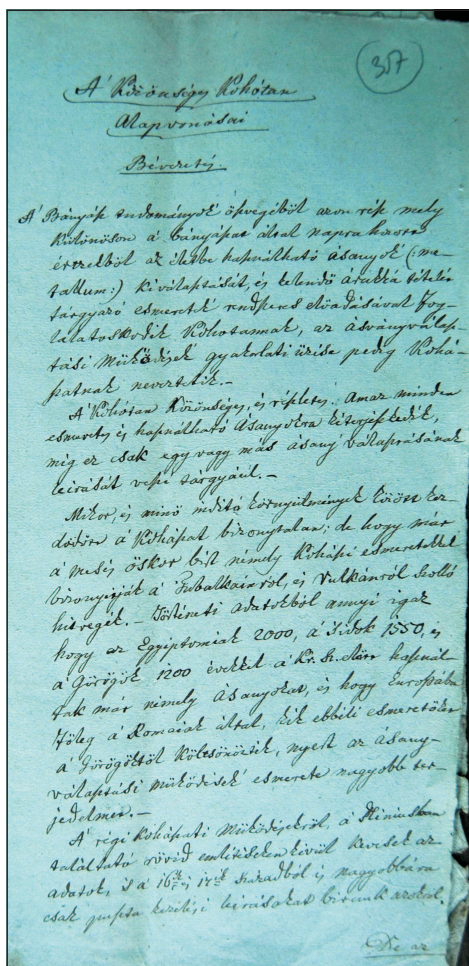 307
A' Közönséges Kohótan
Alapvonásai
Bévezetés.
A' Bányász tudományok' öszvegéből azon rész mely
különösen a' bányászat által napra hozott
érczekből az életbe használható ásanyok (: me-
tallum :) kiválasztását, és kelendő árukká tételét
tárgyazó esmeretek' rendszeres előadásával fog-
lalatoskodik Kohótannak, az ásványválasz-
tási Müködések gyakorlati üzése pedig Kohá-
szatnak neveztetik. –
A' Kohótan Közönséges, és részletes. Amaz minden
esmeretes és használható Ásanyokra kiterjeszkedik,
míg ez csak egy vagy más ásany választásának
leirását veszi tárgyául. –
Mikor, és minő indító környülmények között kez-
dödött a' Kohászat bizonytalan; de hogy már
a' mesés őskor birt némely Kohászi esmeretekkel
bizonyitják a' Tubalkainról, és Vulkánról szolló
hitregék. – Történeti adatokból annyi igaz
hogy az Egyiptomiak 2000, a' Sidók 1550, és
a' Görögök 1200 évekkel a' Kr. Sz. előtt használ-
tak már némely Ásanyokat, és hogy Európába
főleg a' Romaiak által, kik ebbili esmeretöket
a' Görögöktöl kölcsönözték, nyert az ásany-
választási müködések' esmerete nagyobb ter-
jedelmet. –
A' régi Kohászati Müködésekröl, a' Pliniusban
található rövid emlitéseken kivül kevesek az
adatok, 's a' 16ik és 17ik Századból is nagyobbára
csak puszta kezelési leirásokat birunk azokról.
De az